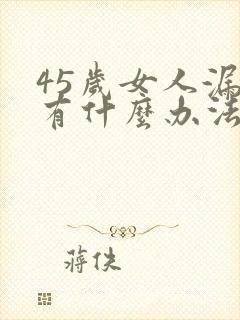 45歲女人漏
有什麼办法
蔣佚